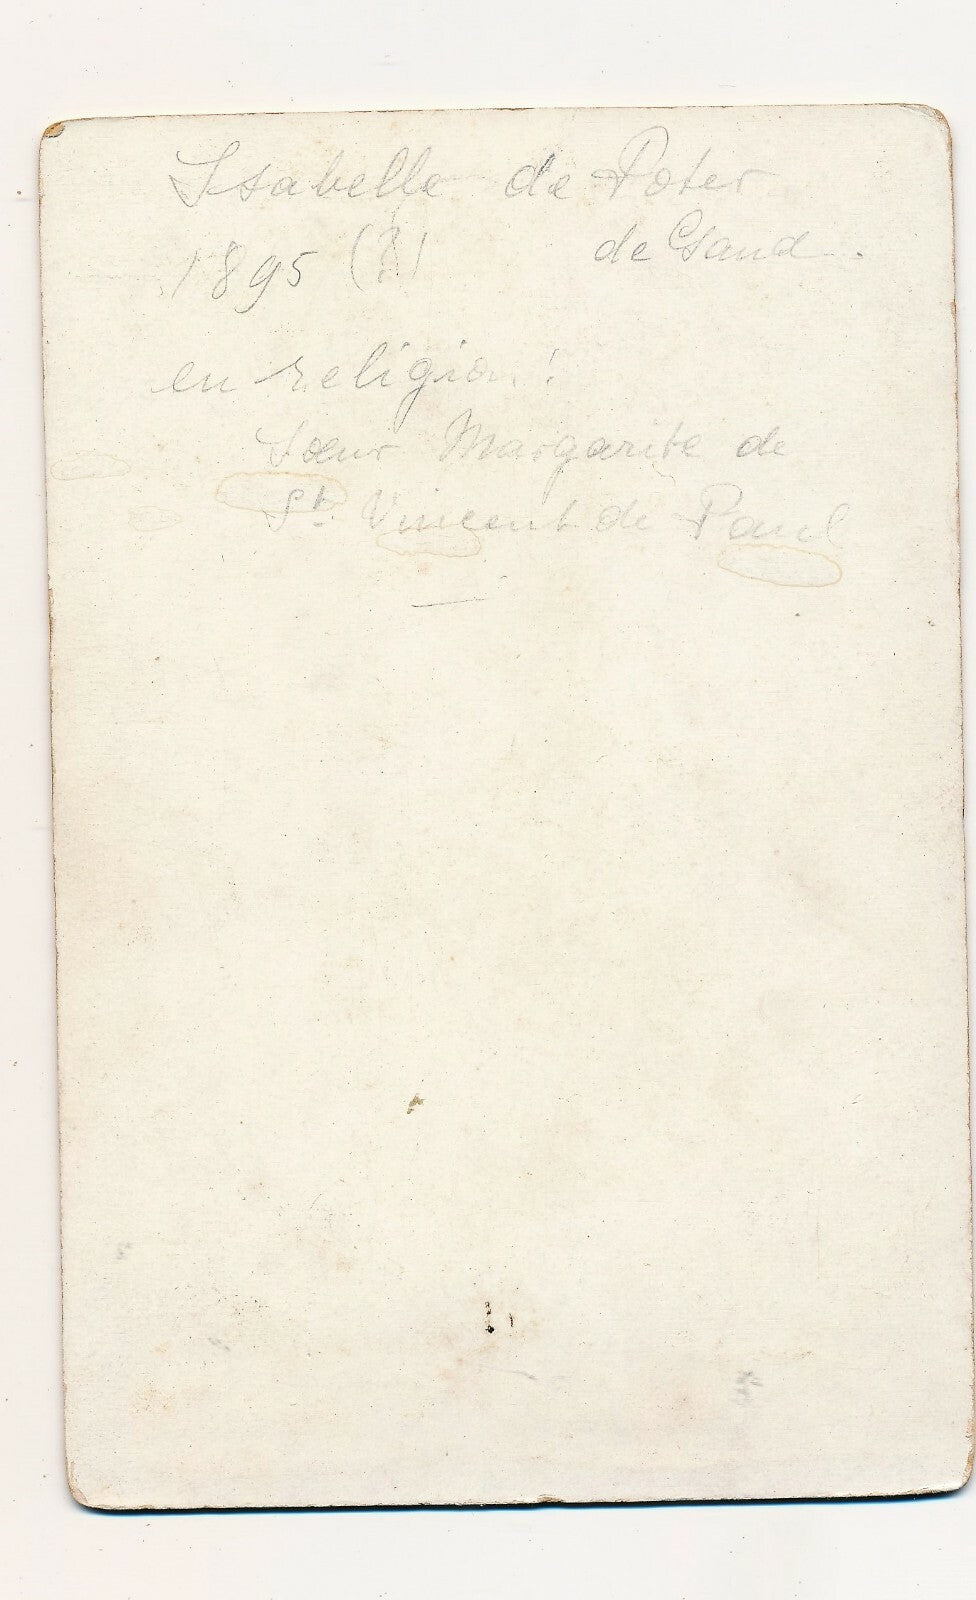 Isabelle de Poter
de Gand.
1895 (?)
en religion :
Sœur Margarite de
St. Vincent de Paul